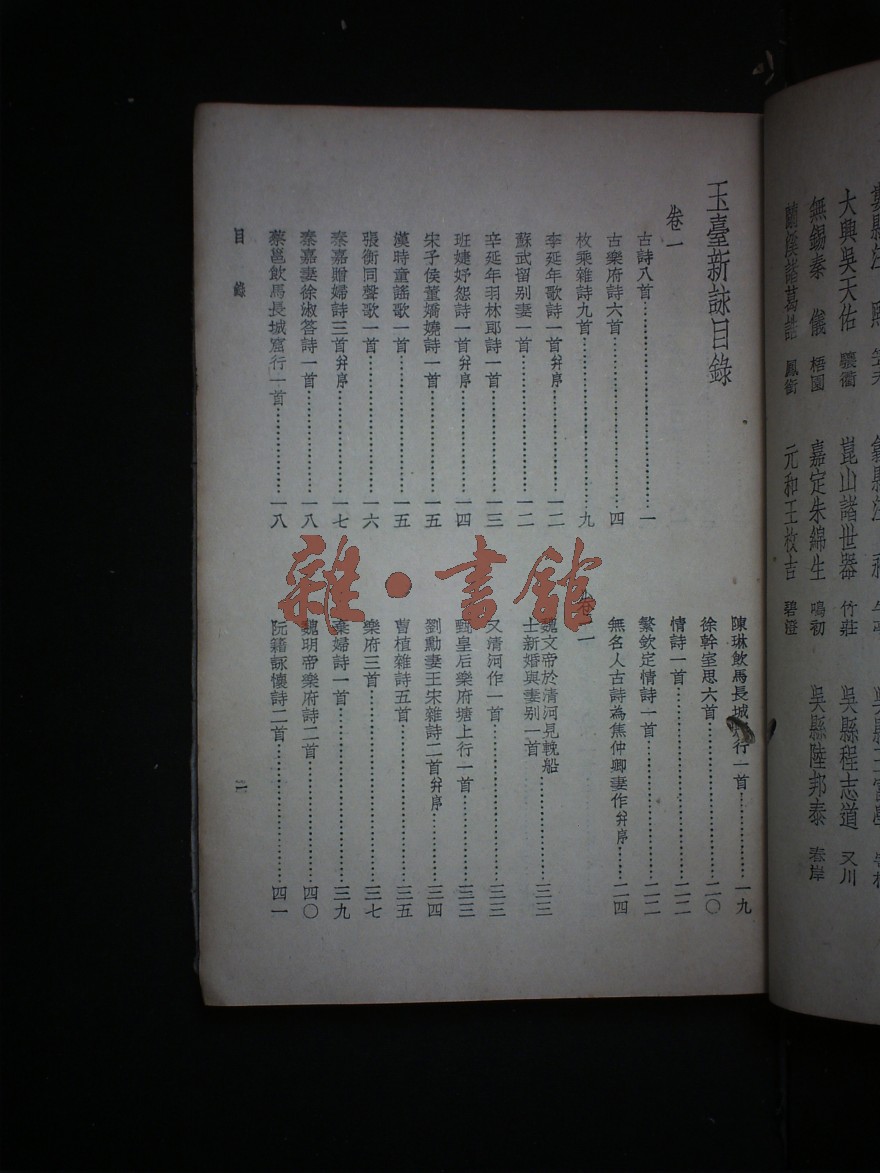 大興吳天佑 驤衢 崑山諸世器 竹莊 吳縣程志道 又川
無錫秦儀 梧園 嘉定朱錦生 鳴初 吳縣陸邦泰 泰岸
鳳銜 元和王枚吉 碧澄
玉臺新詠目錄
卷一
古詩八首…………一
古樂府詩六首…………四
枚乘雜詩九首…………九
李延年歌詩一首并序…………一二
蘇武留別妻一首…………一二
辛延年羽林郎詩一首…………一三
班婕妤怨詩一首并序…………一四
宋子侯董嬌嬈詩一首…………一五
漢時童謠歌一首…………一五
張衡同聲歌一首…………一六
秦嘉贈婦詩三首并序…………一七
秦嘉妻徐淑答詩一首…………一八
蔡邕飲馬長城窟行一首…………一八
陳琳飲馬長城行一首…………一九
徐幹室思六首…………二〇
情詩一首…………二二
繁欽定情詩一首…………二二
無名人古詩為焦仲卿妻作并序……二四
卷二
魏文帝於清河見輓船
士新婚與妻別一首…………三三
又清河作一首…………三三
甄皇后樂府塘上行一首…………三三
劉勳妻王宋雜詩二首并序…………三四
曹植雜詩五首…………三五
樂府三首…………三七
棄婦詩一首…………三九
魏明帝樂府詩二首…………四〇
阮籍詠懷詩二首…………四一
目錄
一
雜·書館